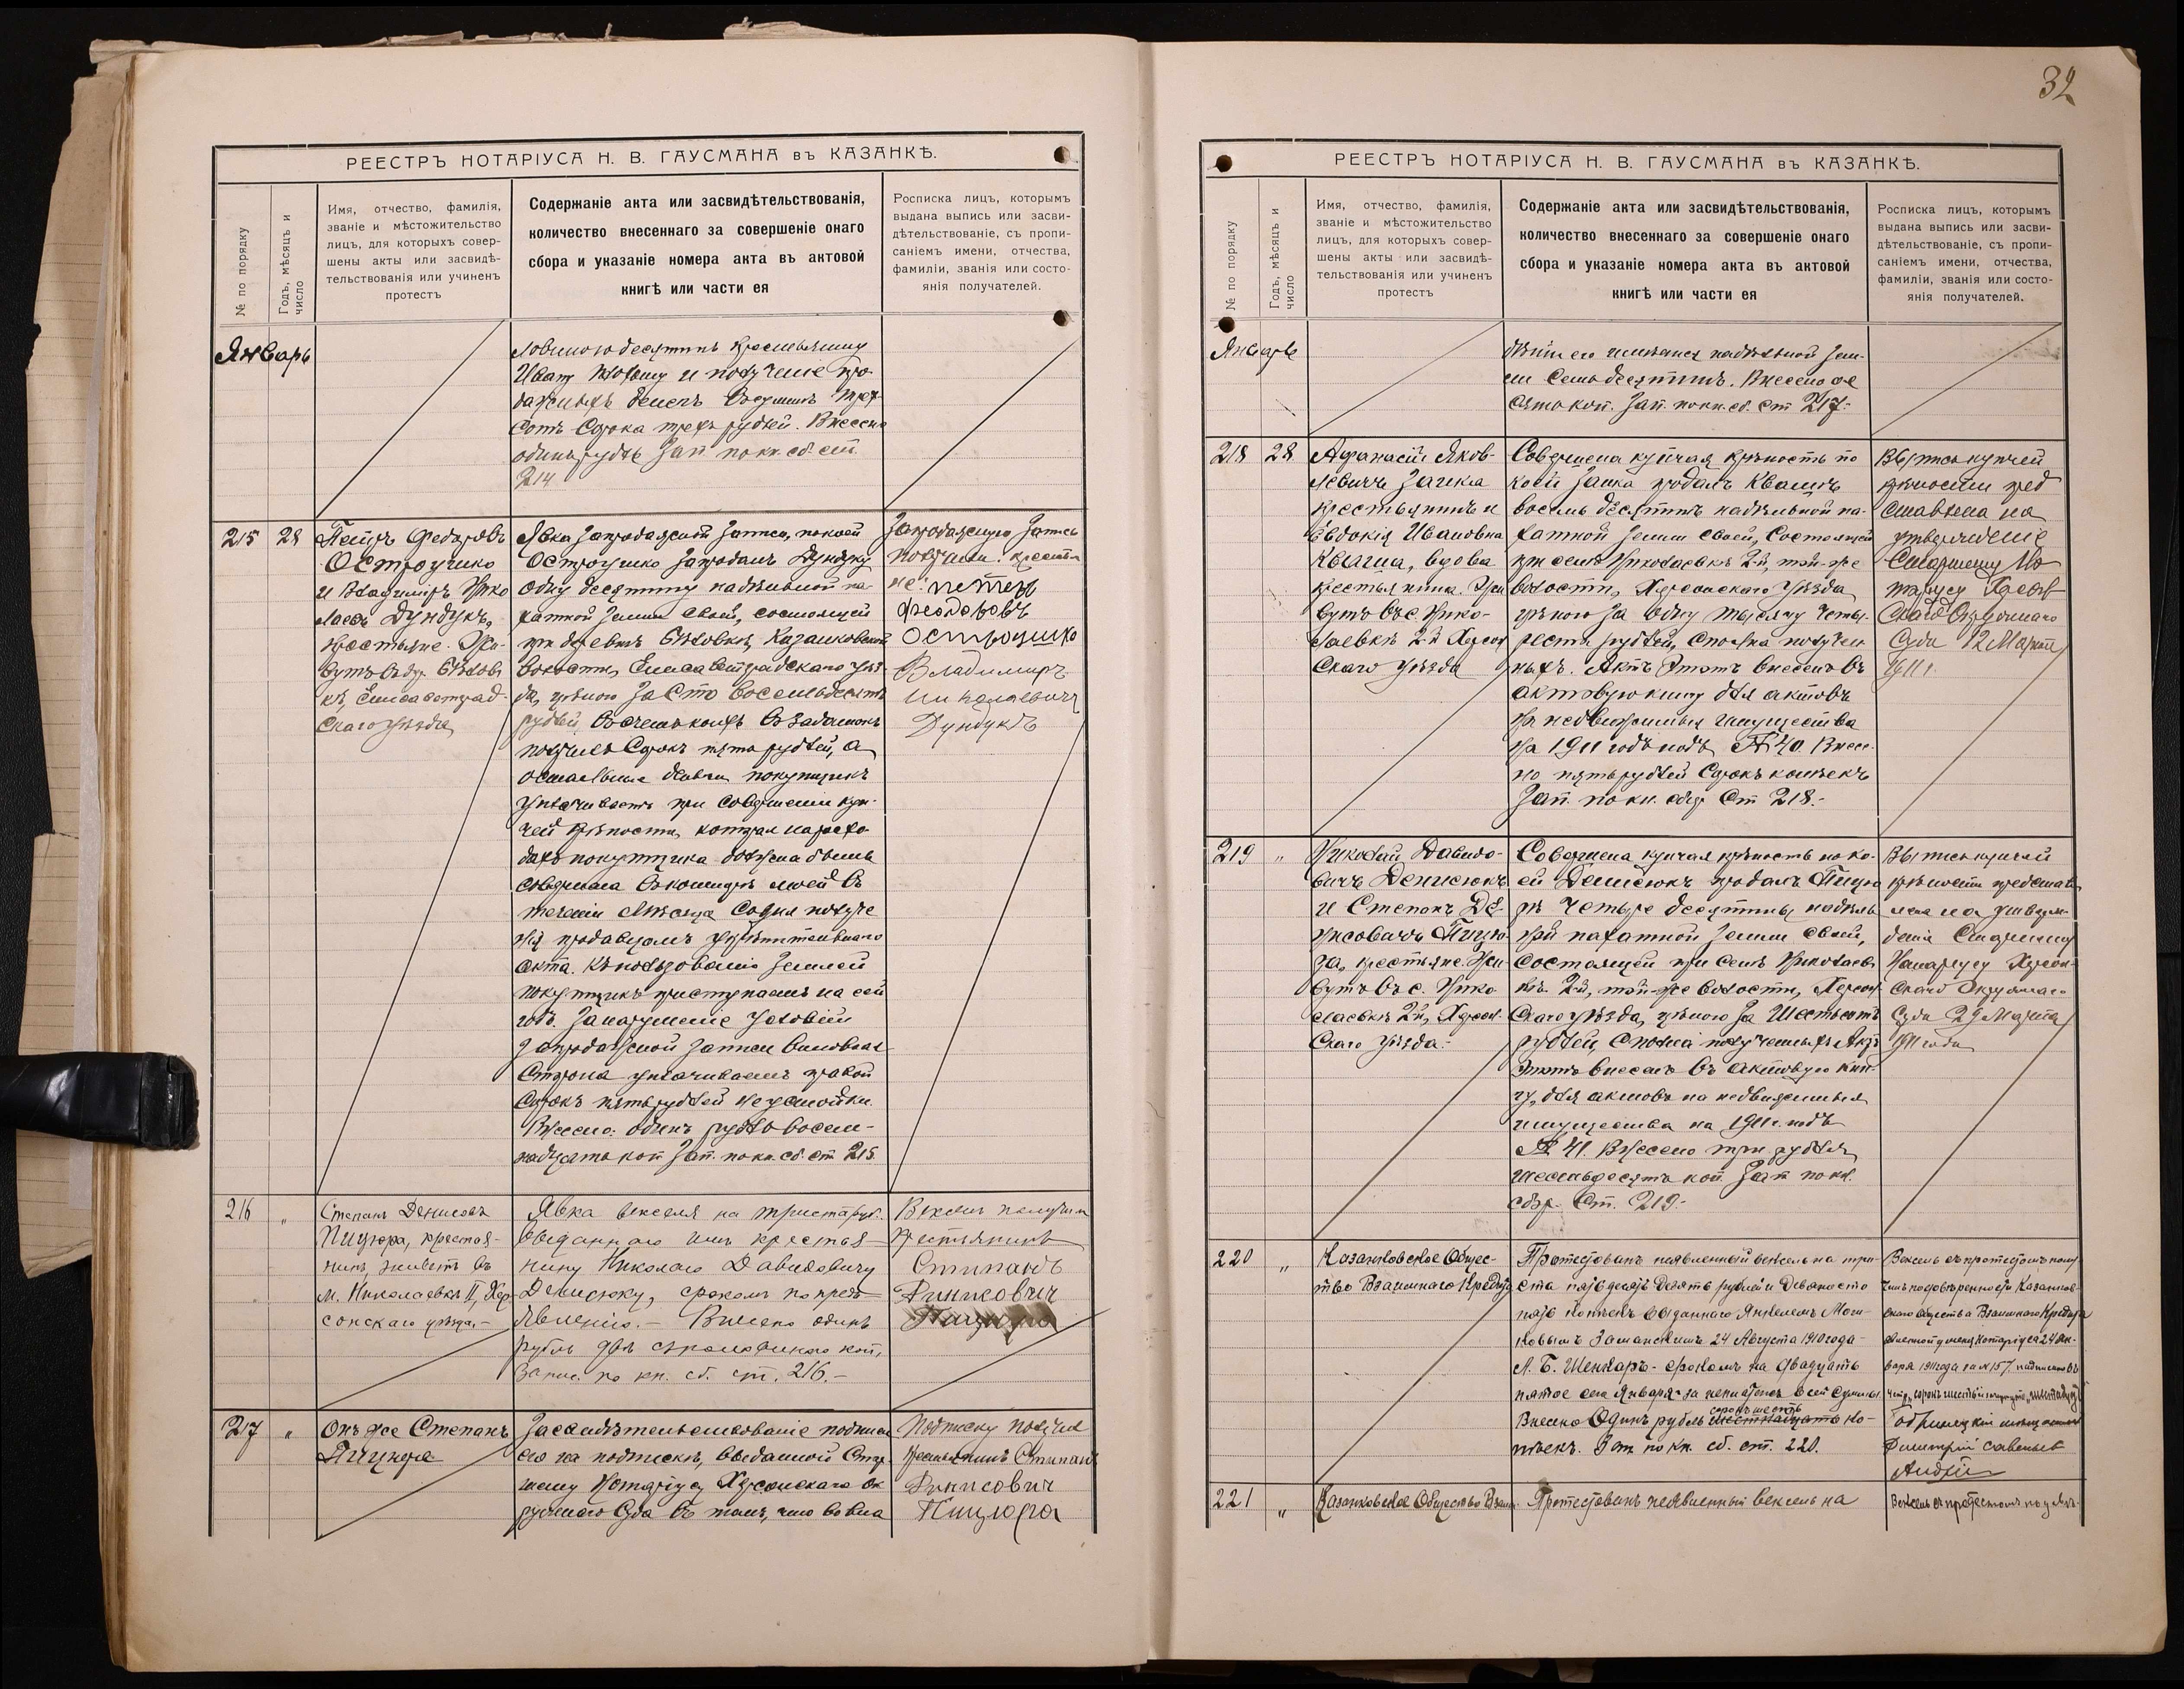 РЕЕСТРЪ НОТАРІУСА Н. В. ГАУСМАНА въ КАЗАНКѢ.
№ по порядку
Годъ, мѣсяцъ и
число
Имя, отчество, фамилія,
званіе и мѣстожительство
лицъ, для которыхъ совер-
шены акты или засвидѣ-
тельствованія или учиненъ
протестъ
Содержаніе акта или засвидѣтельствованія,
количество внесеннаго за совершеніе онаго
сбора и указаніе номера акта въ актовой
книгѣ или части ея
Росписка лицъ, которымъ
выдана выпись или засви-
дѣтельствованіе, съ пропи-
саніемъ имени, отчества,
фамиліи, званія или состо-
янія получателей.
Январь
десятинъ крестьянину
Ивану и полученіе про-
дажныхъ денегъ трех-
сотъ сорока трехъ рублей. Внесено
одинъ рубль Зап. по кн. сб. ст.
214
215
28
Петръ Федоровъ
Остроушко
и Владиміръ Нико
лаевъ Дундукъ,
крестьяне. Жи-
вутъ въ др. Бѣлов
кѣ, Елисаветград-
скаго уѣзда
Явка запродажной записи, по коей
Остроушко запродалъ Дундуку
одну десятину надѣльной па-
хатной земли своей, состоящей
при деревнѣ Бѣловкѣ, Казанковской
волости, Елисаветградскаго уѣз-
да, цѣною за сто восемьдесятъ
рублей, въ счетъ коихъ въ задатокъ
получилъ сорокъ пять рублей, а
остальные деньги покупщикъ
уплачиваетъ при совершеніи куп-
чей крѣпости, которая на расхо-
дахъ покупщика должна быть
совершена въ конторѣ моей въ
теченіи мѣсяца со дня получе
нія продавцомъ укрѣпительнаго
акта. Къ пользованію землей
покупщикъ приступаетъ на сей
годъ. За нарушеніе условій
запродажной записи виновная
сторона уплачиваетъ правой
сорокъ пять рублей неустойки.
Внесено: одинъ рубль восем-
надцать коп Зап. по кн. сб. ст 215
Запродажную запись
получили. крестья
не: петеръ
феодоровъ
Остроушко
Владимиръ
Николаевичъ
Дундукъ
216
"
Степанъ Денисовъ
Пицюра, крестья-
нинъ, живетъ въ
м. Николаевкѣ II, Хер-
сонскаго уѣзда.-
Явка векселя на триста руб.
выданнаго имъ крестья-
нину Николаю Давидовичу
Денисюку, срокомъ по предъ-
явленію.- Внесено одинъ
рубль коп,
Запис. по кн. сб. ст. 216.-
Вексель получилъ
крестьянинъ
Степанъ
217
"
Онъ же Степанъ
Пицюра
Засвидѣтельствованіе подписи
его на подпискѣ, выданной Стар-
шему Нотаріусу Херсонскаго Ок
ружнаго Суда въ томъ, что во вла
Подписку получилъ
крестьянинъ Степанъ
Денисович
Пицюра
32
РЕЕСТРЪ НОТАРІУСА Н. В. ГАУСМАНА въ КАЗАНКѢ.
№ по порядку
Годъ, мѣсяцъ и
число
Имя, отчество, фамилія,
званіе и мѣстожительство
лицъ, для которыхъ совер-
шены акты или засвидѣ-
тельствованія или учиненъ
протестъ
Содержаніе акта или засвидѣтельствованія,
количество внесеннаго за совершеніе онаго
сбора и указаніе номера акта въ актовой
книгѣ или части ея
Росписка лицъ, которымъ
выдана выпись или засви-
дѣтельствованіе, съ пропи-
саніемъ имени, отчества,
фамиліи, званія или состо-
янія получателей.
Январь
дѣніи его имѣется надѣльной зем-
ли семь десятинъ. Внесено де
сять коп. Зап. по кн. сб. ст 217.-
218
28
Афанасій Яков-
левичъ Заика
крестьянинъ и
Евдокія Ивановна
Квачина, вдова
крестьянина. Жи
вутъ въ с. Нико-
лаевкѣ 2-й Херсон
скаго уѣзда
Совершена купчая крѣпость по
коей Заика продалъ
восемь десятинъ надѣльной па-
хатной земли своей, состоящей
при селѣ Николаевкѣ 2-й, той-же
волости, Херсонскаго уѣзда,
цѣною за одну тысячу четы-
реста рублей, сполна получен
ныхъ. Актъ этотъ внесенъ въ
актовую книгу для актовъ
на недвижимыя имущества
на 1911 годъ подъ № 40. Внесе-
но пять рублей сорокъ копѣекъ
Зап. по кн. сбор. ст 218.-
Выпись купчей
крѣпости пред
ставлена на
утвержденіе
Старшему Но
таріусу Херсон
скаго Окружнаго
Суда 12 Марта
1911 г.
219
"
Николай Давидо-
вичъ Денисюкъ
и Степанъ Де-
нисовичъ Пицю
ра, крестьяне. Жи
вутъ въ с. Нико
лаевкѣ 2-й, Херсон-
скаго уѣзда.-
Совершена купчая крѣпость по ко-
ей Денисюкъ продалъ Пицю
рѣ четыре десятины надѣль
ной пахатной земли своей,
состоящей при селѣ Николаев
кѣ 2-й, той-же волости, Херсон-
скаго уѣзда, цѣною за шестьсотъ
рублей, сполна полученныхъ. Актъ
этотъ внесенъ въ актовую кни-
гу, для актовъ на недвижимыя
имущества на 1911 г. подъ
№ 41. Внесено три рубля
шестьдесятъ коп. Зап по кн.
сбор. Ст. 219.-
Выпись купчей
крѣпости представ
лена на утверж-
деніе Старшему
Нотаріусу Херсон-
скаго Окружнаго
Суда 29 Марта
1911 года
220
"
Казанковское Общес-
тво Взаимнаго Кредита
Протестованъ неявленный вексель на три-
ста пятьдесятъ девять рублей и девяносто
пять копѣекъ выданнаго Янкелемъ Мош-
ковымъ Заманскимъ 24 Августа 1910 года
Л. Б. Шенкаръ - срокомъ на двадцать
пятое сего Января- за неплатежъ всей суммы
сорокъ шесть
Внесено Одинъ рубль шестнадцать ко-
пѣекъ. Зап по кн. сб. ст. 220.
Вексель съ протестомъ полу
чилъ по довѣренности Казанков-
скаго Общества Взаимнаго Кредита
явленной у меня Нотаріуса 24 Ян-
варя 1911 года за № 157. надписано въ
221
"
Казанковское Общество Взаим-
Протестованъ неявленный вексель на
Вексель съ протестомъ получ-